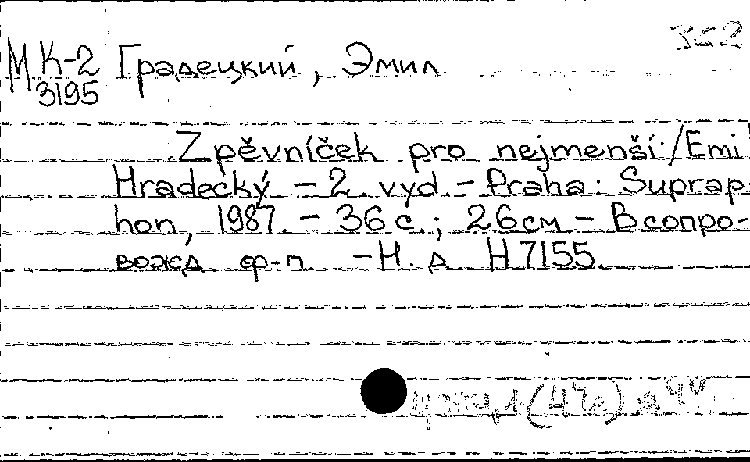 МК-2 Градецкий, Эмил
3195
Zpěvníček pro nejmenší / Emi
Hradecký – 2. vyd. – Praha: Suprap
hon, 1987. – 36 с.; 26 см – В сопро-
вожд ф-п. – Н. д Н 7155.